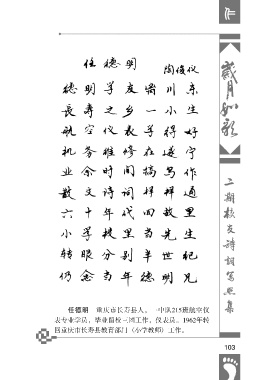 任德明
陶俊仪
德明学友川东
長寿之乡一小生
航空仪表学得好
机务維修在遂宁
业余时间搞写作
散文诗词样样通
六十年代回故里
小学校里当先生
转眼分别半世纪
仍念当年德明兄
任德明 重庆市长寿县人。一中队215班航空仪
表专业学员，毕业留校三团工作，仪表员。1962年转
回重庆市长寿县教育部门（小学教师）工作。
歲月如歌
二期校友诗词写照集
103